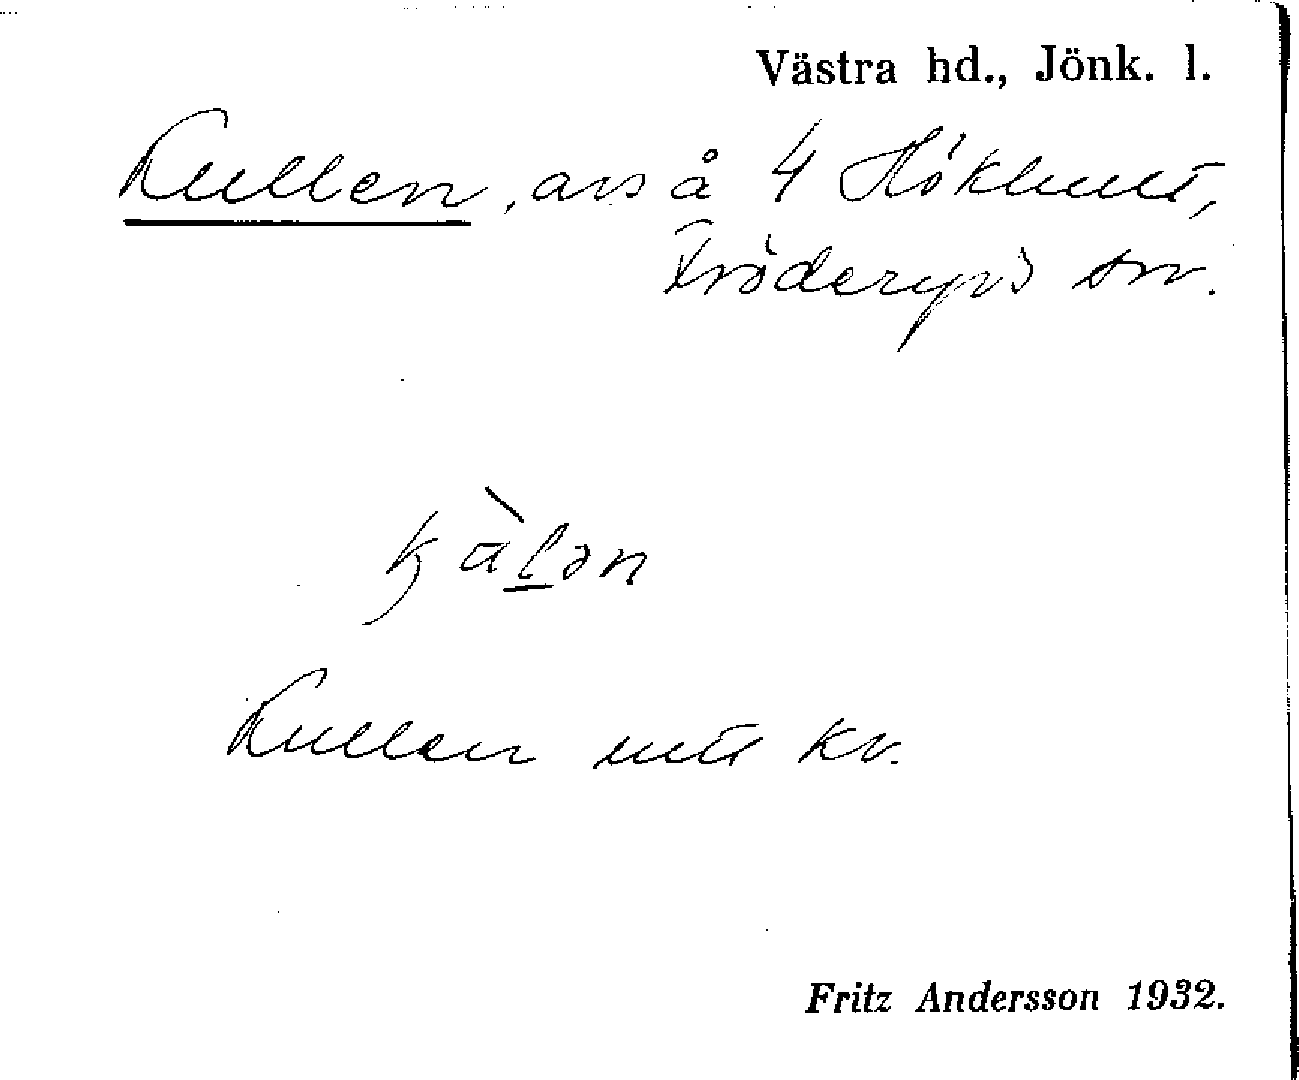 Västra hd., Jönk. l.
Kullen, avs å 4 Hökhult,
Fröderyds sn.
kàlən
Kullen utt kv.
Fritz Andersson 1932.